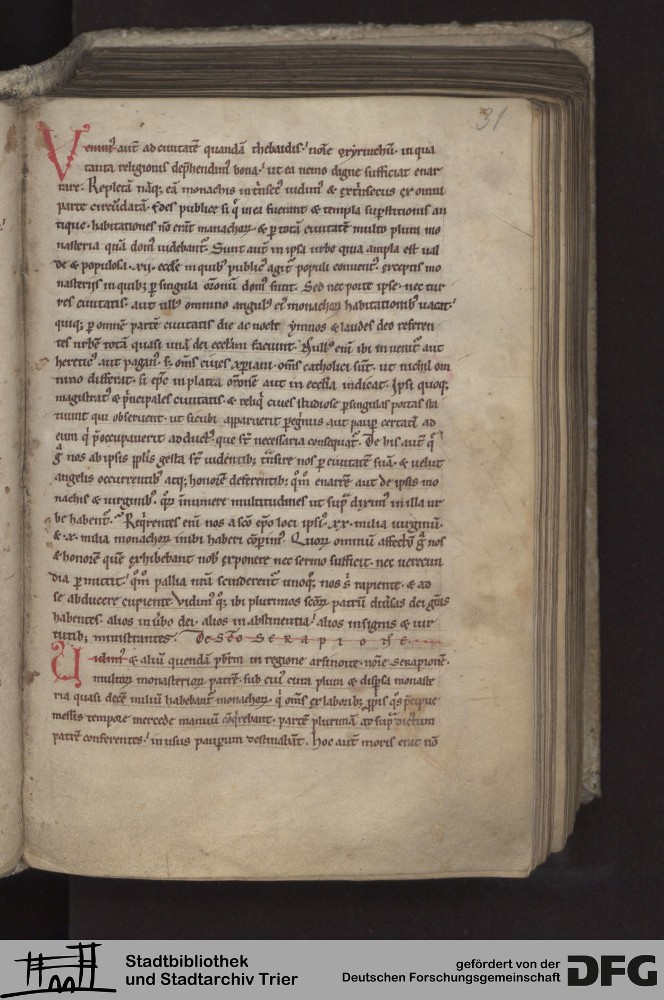 31
Venim⁹ aut̄ ad ciuitatē quandā thebaidis· noīe exyrinchū· in qua
tanta religionis dep̄hendim⁹ bona· ut ea nemo digne sufficiat enar
rare· Repletā nāq; eā monachis int̄nsec⁹ uidim⁹ & ext̄nsecus ex omni
parte circūdatā· Edes publice si q̄ in ea fuerant & templa sup̄stitionis an
tique· habitationes nō erāt monachoꝝ & ꝑ totā ciuitatē multo plura mo
nasteria quā dom⁹ uidebant᷑· Sunt aut̄ in ipsa urbe quia ampla est ual
de & populosa· xii· eccl̄e in quib⁹ public⁹ agit᷑ populi conuent⁹· exceptis mo
nasterijs in quib; ꝑ singula or̄onū dom⁹ sunt· Sed nec porte ipse· nec tur
res ciuitatis· aut ull⁹ omnino angul⁹ ei⁹ monachoꝝ habitationib⁹ uacat·
quiq; ꝑ omnē partē ciuitatis die ac nocte ymnos & laudes deo referen
tes urbē totā quasi unā dei eccl̄am faciunt· Null⁹ eni᷑ ibi inuenit᷑ aut
heretic⁹ aut pagan⁹ s; om̄s ciues xp̄iani· om̄s catholici sūt· ut nichil om
nino differat· si ep̄c in platea or̄onē aut in ecclia indicat· Ipsi quoq;
magistrat⁹ & p̄ncipales ciuitatis· & reliq̄ ciues studiose ꝑ singulas portas sta
tuunt qui obseruent· ut sicubi apparuerit peg̓nus aut pauꝑ certatī ad
eum q̓ p̄occupauerit adduct⁹ que st̄ necessaria consequat᷑· De his aut̄ q̄
g̓ nos ab ipsis pp̄lis gesta st̄ uidentib; t̓nsire nos ꝑ ciuitatē suā· & uelut
angelis occurrentib⁹ atq; honorē deferentib; qm̄ enarrē aut de ipsis mo
nachis & uirginib⁹· qꝝ innumere multitudines ut sup̄ dixim⁹ in illa ur
be habent᷑· Req̓rentes eni᷑ nos a sc̄o ep̄o loci ipsi⁹· xx· milia uirginū·
& x· milia monachoꝝ inibi haberi cōperim⁹· Quoꝝ omniū affectū g̓ nos
& honorē quē exhibebant nob̄ exponere nec sermo sufficit· nec uerecun
dia ꝑmittit· qm̄ pallia nr̄a scinderent᷑ unoq;q; nos s̓ rapiente· & ad
se abducere cupiente Vidim⁹ q;q; ibi plurimos sc̄oꝝ patrū diuersas dei gr̄as
habentes· alios in ūbo dei· alios in abstinentia· alios in signis & uir
tutib; ministrantes· De sc̄o serapione·
Uidim⁹ & aliū quendā pbr̄m in regione arsinoite· noīe serapionē·
multoꝝ monasterioꝝ patrē· sub cui⁹ cura plura & disꝑsa monaste
ria quasi decē miliū habebant᷑ monachoꝝ· q̓ om̄s ex laborib; ꝓpriis q̓s p̄cipue
messis tempore mercede manuū cōq̓rebant· partē plurimā ad sup̄dictum
patrē conferentes· in usus pauꝑum destinabāt· Hoc aut̄ moris erat nō
Stadtbibliothek
und Stadtarchiv Trier
gefördert von der
Deutschen Forschungsgemeinschaft
DFG